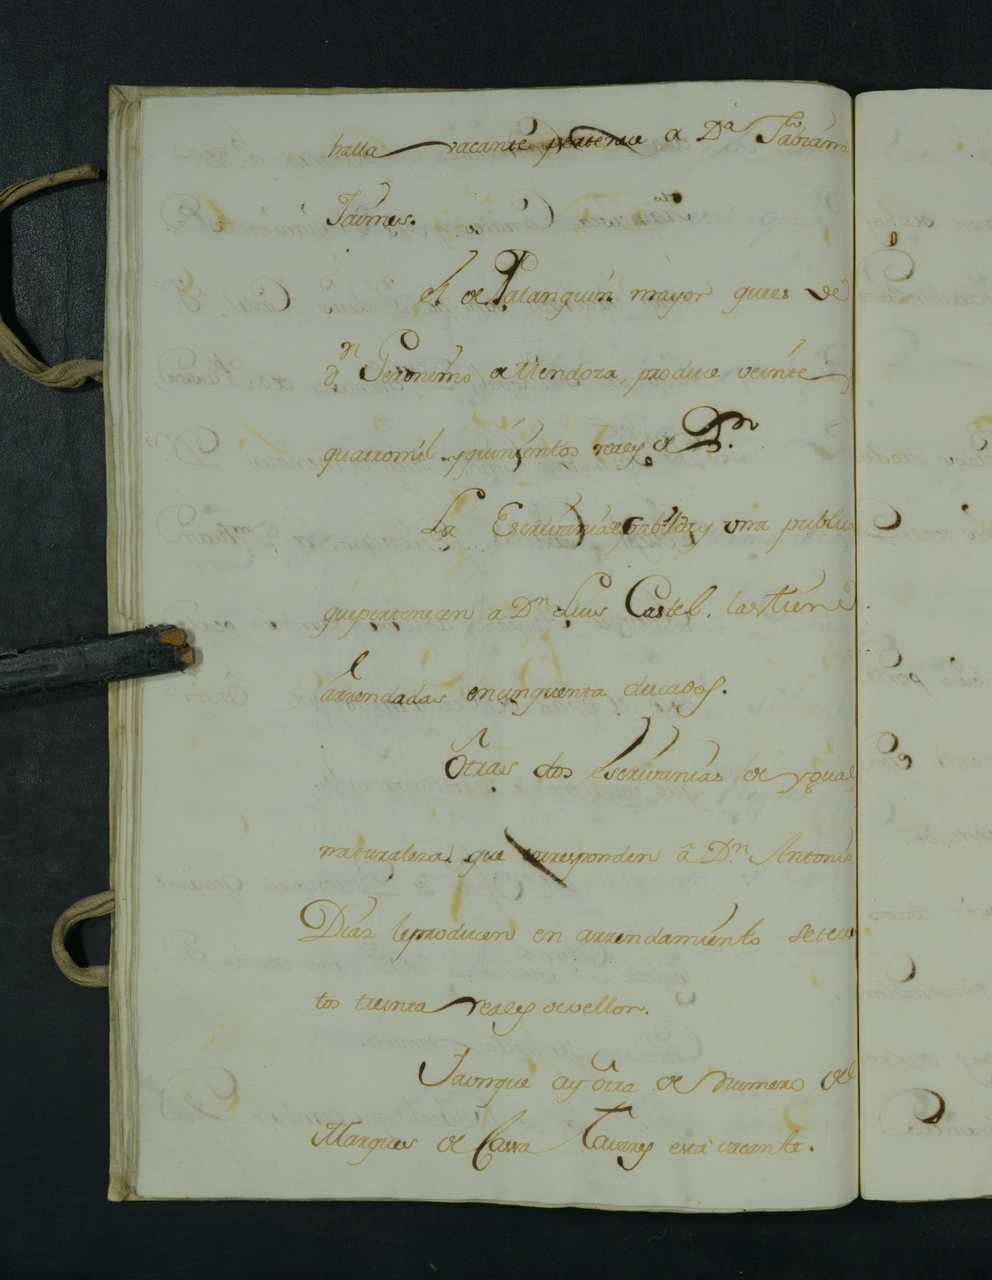 halla vacante pertenece a Dª
Jaimes.
El de Palanquin mayor que es de
Dn Geronimo de Mendoza, produce veinte y
quatromil y quinientos reales de Vn.
La Escrivania de Cabildo y una publica
que pertenecen a Dn Luis Castel, las tiene
arrendadas en cinquenta ducados.
Otras dos Escrivanias de ygual
naturaleza que corresponden â Dn Antonio
Diaz le producen en arrendamiento setecien
tos treinta reales de vellon.
Y aunque ay ôtra de numero del
Marques de Casa Tavares està vacante.